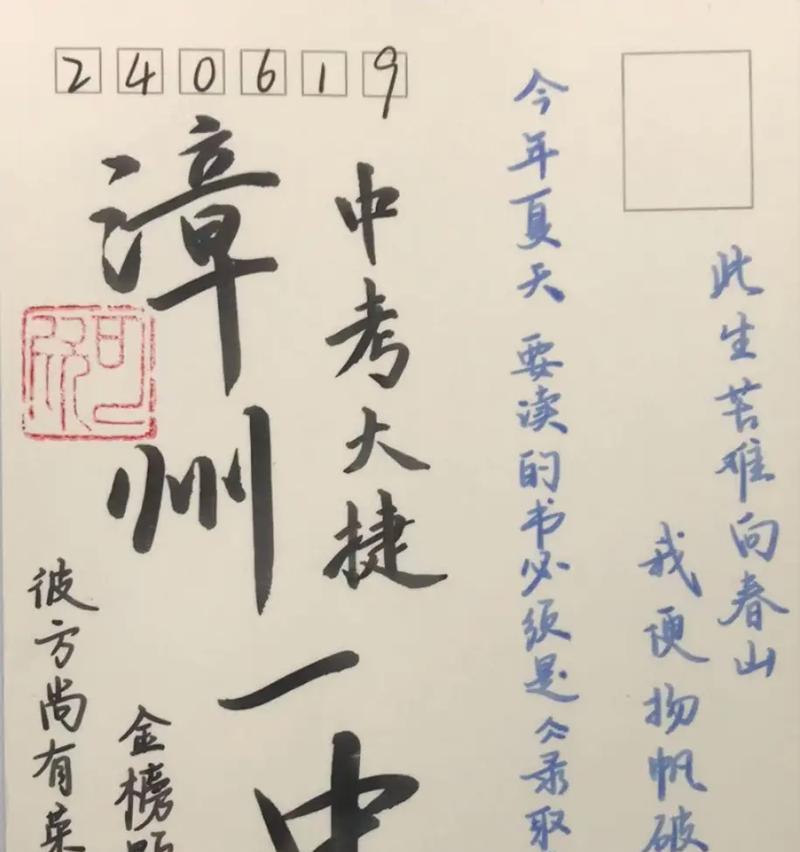 240619
此生苦难向春山
我便扬帆破
今年夏天 要读的书必须是《录取
中考大捷
漳州一中
金榜
彼方尚有荣